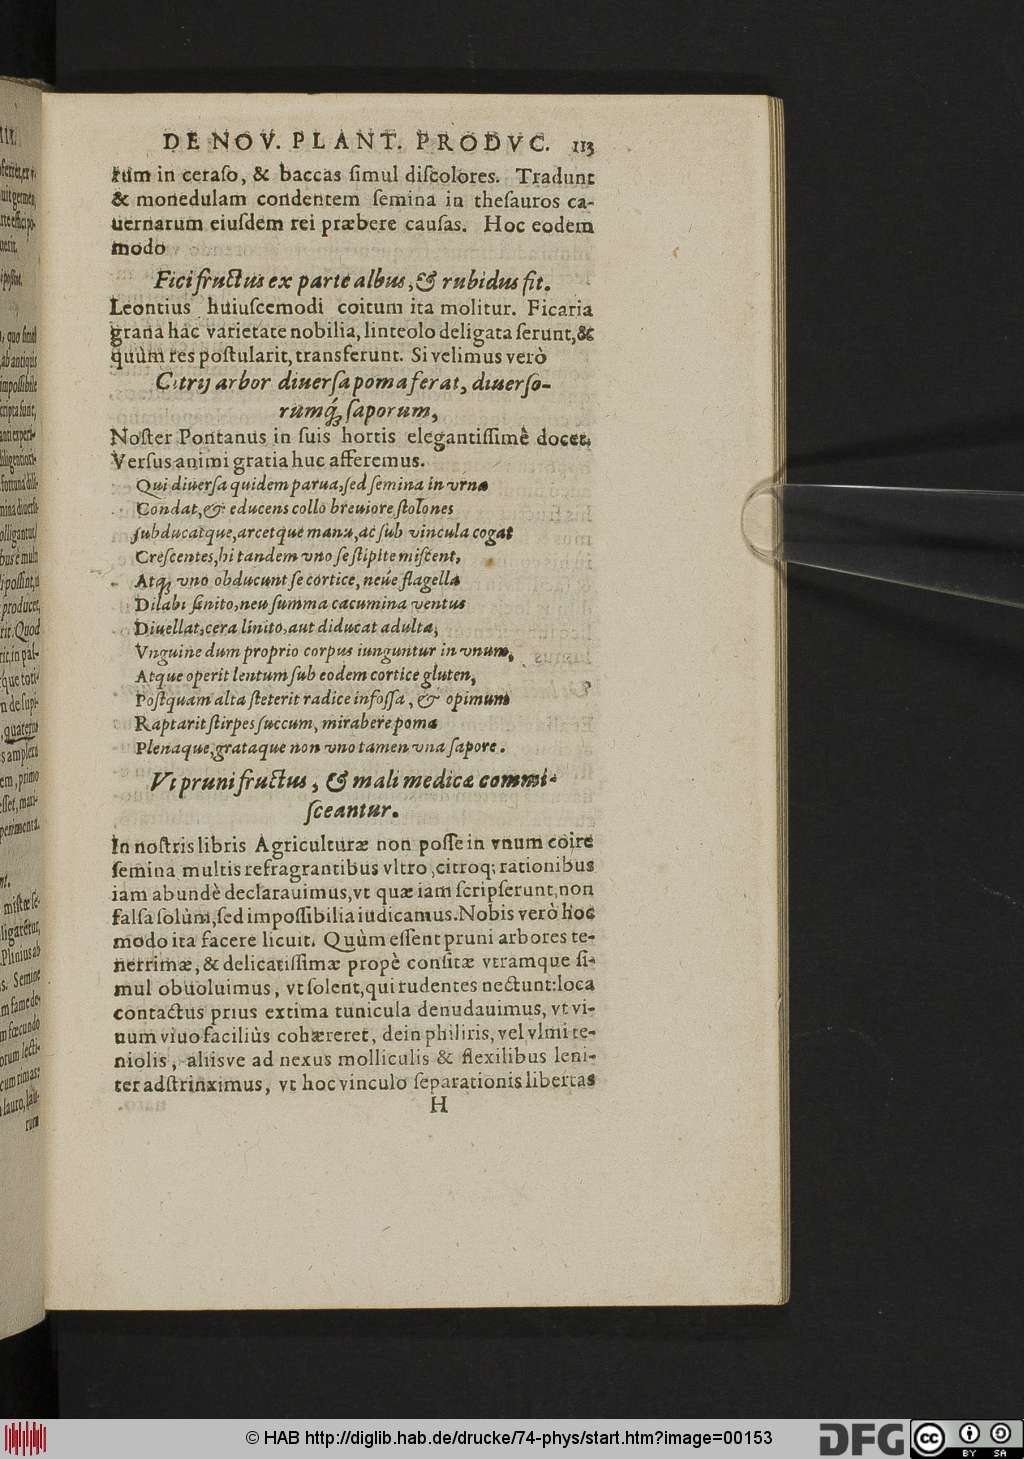 DE NOV. PLANT. PRODVC. 113
rum in ceraſo, & baccas ſimul diſcolores. Tradunt
& monedulam condentem ſemina in theſauros ca-
uernarum eiuſdem rei præbere cauſas. Hoc eodem
modo
Fici fructus ex parte albus, & rubidus fit.
Leontius huiuſcemodi coitum ita molitur. Ficaria
grana hac varietate nobilia, linteolo deligata ſerunt, &
quùm res poſtularit, transferunt. Si velimus verò
Citrij arbor diuerſa poma ferat, diuerſo-
rumq́; ſaporum,
Noſter Pontanus in ſuis hortis elegantiſſimè docet.
Verſus animi gratia huc afferemus.
Qui diuerſa quidem parua, ſed ſemina in vrna
Condat, & educens collo breuiore ſtolones
ſubducatque, arcetque manu, ac ſub vincula cogat
Creſcentes, hi tandem vno ſe ſtipite miſcent,
Atq; vno obducunt ſe cortice, neúe flagella
Dilabi ſinito, neu ſumma cacumina ventus
Diuellat, cera linito, aut diducat adulta,
Vnguine dum proprio corpus iunguntur in vnum,
Atque operit lentum ſub eodem cortice gluten,
Poſtquam alta ſteterit radice infoſſa, & opimum
Raptarit ſtirpes ſuccum, mirabere poma
Plenaque, grataque non vno tamen vna ſapore.
Vt pruni fructus, & mali medicæ commi-
ſceantur.
In noſtris libris Agriculturæ non poſſe in vnum coire
ſemina multis refragrantibus vltro, citroq; rationibus
iam abundè declarauimus, vt quæ iam ſcripſerunt, non
falſa ſolùm, ſed impoſſibilia iudicamus. Nobis verò hoc
modo ita facere licuit. Quùm eſſent pruni arbores te-
nerrimæ, & delicatiſſimæ propè conſitæ vtramque ſi-
mul obuoluimus, vt ſolent, qui rudentes nectunt: loca
contactus prius extima tunicula denudauimus, vt vi-
uum viuo faciliùs cohæreret, dein philiris, vel vlmi te-
niolis, aliisve ad nexus molliculis & flexilibus leni-
ter adſtrinximus, vt hoc vinculo ſeparationis libertas
H
© HAB http://diglib.hab.de/drucke/74-phys/start.htm?image=00153
DFG
cc BY SA